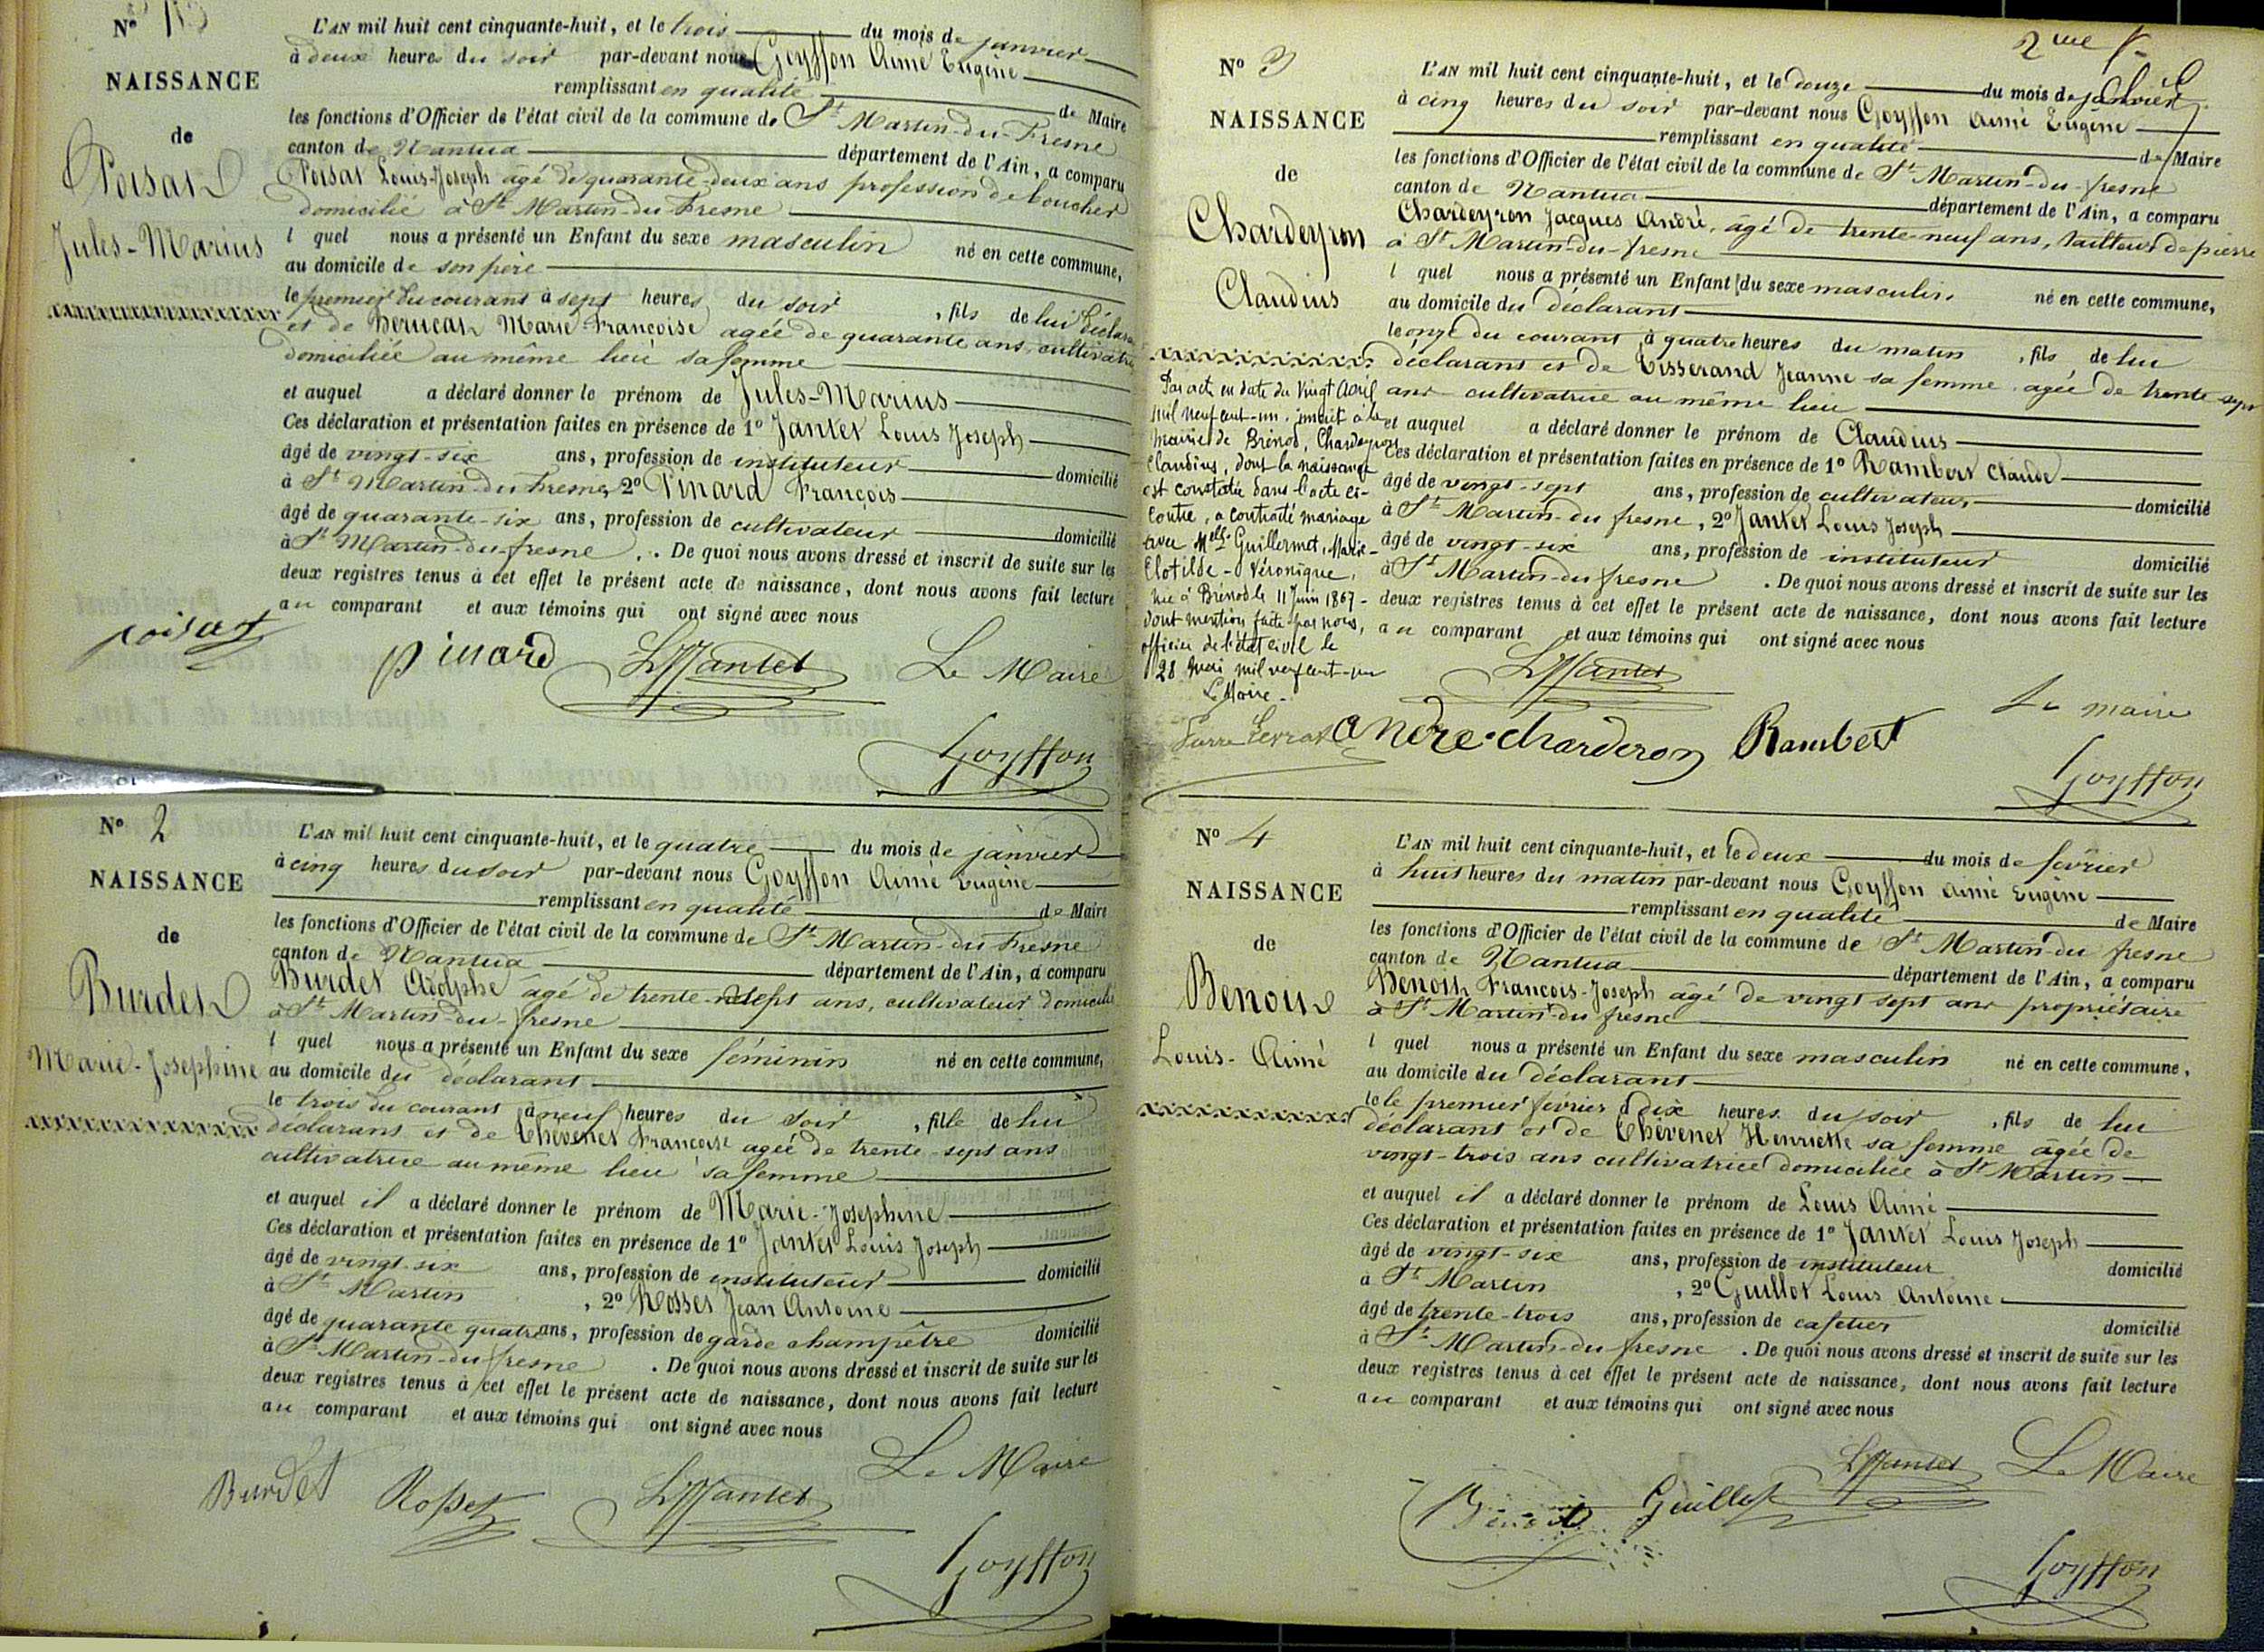 N° 1
NAISSANCE
de
Poisat
Jules-Marius
L'AN mil huit cent cinquante-huit, et le trois du mois de janvier
à deux heures du soir par-devant nous Goyffon Aimé Eugène
remplissant en qualité de Maire
les fonctions d'Officier de l'état civil de la commune de St Martin-du-Fresne
canton de Nantua département de l'Ain, a comparu
Poisat Louis-Joseph âgé de quarante-deux ans profession de boucher
domicilié à St Martin-du-Fresne
l quel nous a présenté un Enfant du sexe masculin né en cette commune,
au domicile de son père
le premier du courant à sept heures du soir, fils de lui déclara
et de Marie-Françoise agée de quarante ans, cultivatri
domiciliée au même lieu sa femme
et auquel a déclaré donner le prénom de Jules-Marius
Ces déclaration et présentation faites en présence de 1° Jantet Louis Joseph
âgé de vingt-six ans, profession de instituteur domicilié
à St Martin-du-Fresne, 2° Pinard François
âgé de quarante-six ans, profession de cultivateur domicilié
à St Martin-du-fresne. De quoi nous avons dressé et inscrit de suite sur les
deux registres tenus à cet effet le présent acte de naissance, dont nous avons fait lecture
au comparant et aux témoins qui ont signé avec nous
poisat pinard LJJantet Le Maire
Goyffon
N° 2
NAISSANCE
de
Burdet
Marie-Josephine
L'AN mil huit cent cinquante-huit, et le quatre du mois de janvier
à cinq heures du soir par-devant nous Goyffon Aimé Eugène
remplissant en qualité de Maire
les fonctions d'Officier de l'état civil de la commune de St Martin-du-Fresne
canton de Nantua département de l'Ain, a comparu
Burdet Adolphe âgé de trente-sept ans, cultivateur domicilié
à St Martin-du-fresne
l quel nous a présenté un Enfant du sexe féminin né en cette commune,
au domicile du déclarant
le trois du courant à neuf heures du soir, fille de lui
déclarant et de Chévenet Françoise agée de trente-sept ans
cultivatrice au même lieu sa femme
et auquel il a déclaré donner le prénom de Marie-Josephine
Ces déclaration et présentation faites en présence de 1° Jantet Louis Joseph
âgé de vingt-six ans, profession de instituteur domicilié
à St Martin, 2° Rosset Jean Antoine
âgé de quarante quatre ans, profession de garde champêtre domicilié
à St Martin-du-fresne. De quoi nous avons dressé et inscrit de suite sur les
deux registres tenus à cet effet le présent acte de naissance, dont nous avons fait lecture
au comparant et aux témoins qui ont signé avec nous
Burdet Rosset LJJantet Le Maire
Goyffon
2me f
N° 3
NAISSANCE
de
Chardeyron
Claudius
L'AN mil huit cent cinquante-huit, et le douze du mois de janvier
à cinq heures du soir par-devant nous Goyffon Aimé Eugène
remplissant en qualité de Maire
les fonctions d'Officier de l'état civil de la commune de St Martin-du-fresne
canton de Nantua département de l'Ain, a comparu
Chardeyron Jacques André, âgé de trente-neuf ans, tailleur de pierre
à St Martin-du-fresne
l quel nous a présenté un Enfant du sexe masculin né en cette commune,
au domicile du déclarant
le onze du courant à quatre heures du matin, fils de lui
déclarant et de Tisserand Jeanne sa femme agée de trente-sept
ans cultivatrice au même lieu
et auquel a déclaré donner le prénom de Claudius
Ces déclaration et présentation faites en présence de 1° Rambert Claude
âgé de vingt-sept ans, profession de cultivateur domicilié
à St Martin-du fresne, 2° Jantet Louis Joseph
âgé de vingt-six ans, profession de instituteur domicilié
à St Martin-du fresne. De quoi nous avons dressé et inscrit de suite sur les
deux registres tenus à cet effet le présent acte de naissance, dont nous avons fait lecture
au comparant et aux témoins qui ont signé avec nous
Par acte en date du Vingt Avril
mil neuf cent-un, inscrit à la
Mairie de Brénod, Chardeyron
Claudius, dont la naissance
est constatée dans l'acte ci-
contre, a contracté mariage
avec Melle Guillermet, Marie-
Clotilde-Véronique,
née à Brénod le 11 Juin 1867-
dont mention faite par nous,
officier de l'état civil le
28 Mai mil neuf cent-un
Le Maire
LJJantet Le maire
andre charderon Rambert
Goyffon
N° 4
NAISSANCE
de
Benoit
Louis-Aimé
L'AN mil huit cent cinquante-huit, et le deux du mois de février
à huit heures du matin par-devant nous Goyffon Aimé Eugène
remplissant en qualité de Maire
les fonctions d'Officier de l'état civil de la commune de St Martin-du fresne
canton de Nantua département de l'Ain, a comparu
Benoit François-Joseph âgé de vingt sept ans propriétaire
à St Martin-du fresne
l quel nous a présenté un Enfant du sexe masculin né en cette commune,
au domicile du déclarant
le le premier février à dix heures du soir, fils de lui
déclarant et de Chévenet Henriette sa femme âgée de
vingt-trois ans cultivatrice domiciliée à St Martin
et auquel il a déclaré donner le prénom de Louis Aimé
Ces déclaration et présentation faites en présence de 1° Jantet Louis Joseph
âgé de vingt-six ans, profession de instituteur domicilié
à St Martin, 2° Guillot Louis Antoine
âgé de trente-trois ans, profession de cafetier domicilié
à St Martin-du fresne. De quoi nous avons dressé et inscrit de suite sur les
deux registres tenus à cet effet le présent acte de naissance, dont nous avons fait lecture
au comparant et aux témoins qui ont signé avec nous
Benoit Guillot LJJantet Le Maire
Goyffon